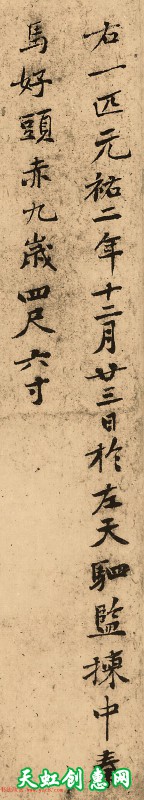 右一匹元祐二年十二月廿三日於左天駟監揀中秦
馬好頭赤九歲四尺六寸
天虹创惠网